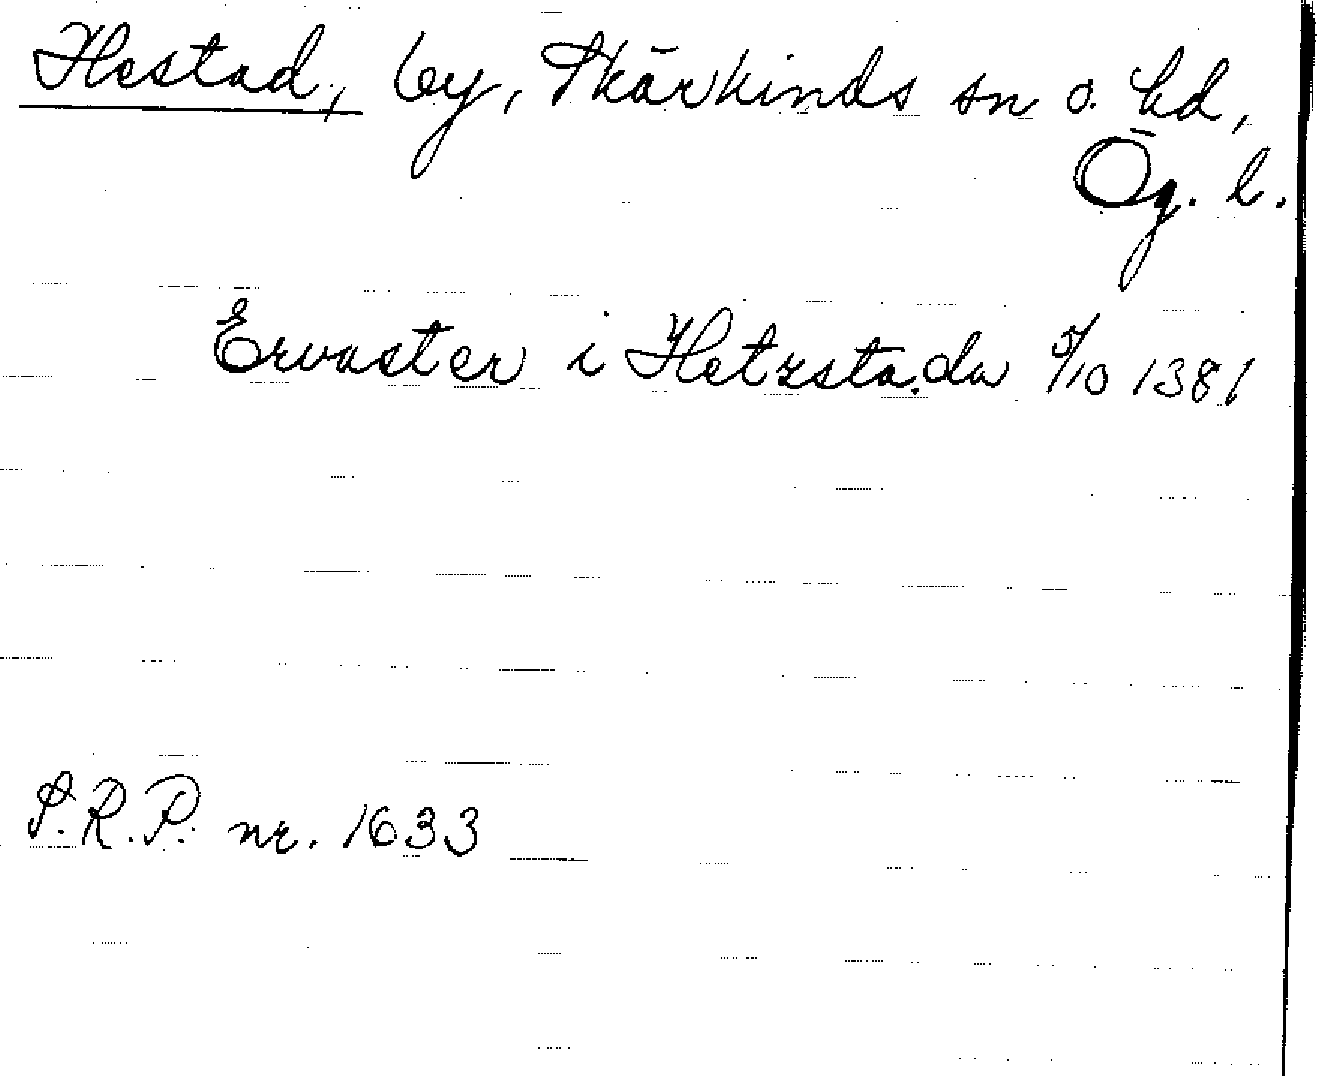 Hestad, by, Skärkinds sn o. hd,
Ög. l.
Ervaster i Hetzstadu 5/10 1381
S.R.P. nr. 1633